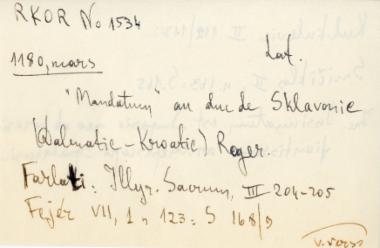 RKOR No 1534
Lat.
1180, mars
"Mandatum au duc de Sklavonie
(Dalmatie-Kroatie) Roger.
Farlati: Illyr. Sacrum, III 204-205
Fejér VII, 1 n 123: S 168/9
V. verso